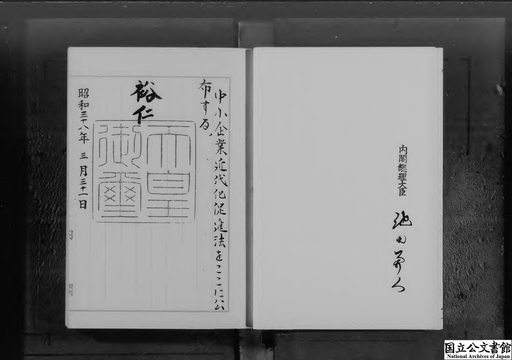 中小企業近代化促進法をここに公
布する
裕仁
天皇
御璽
昭和三十八年 三月三十一日
内閣総理大臣
池田勇人
国立公文書館
National Archives of Japan